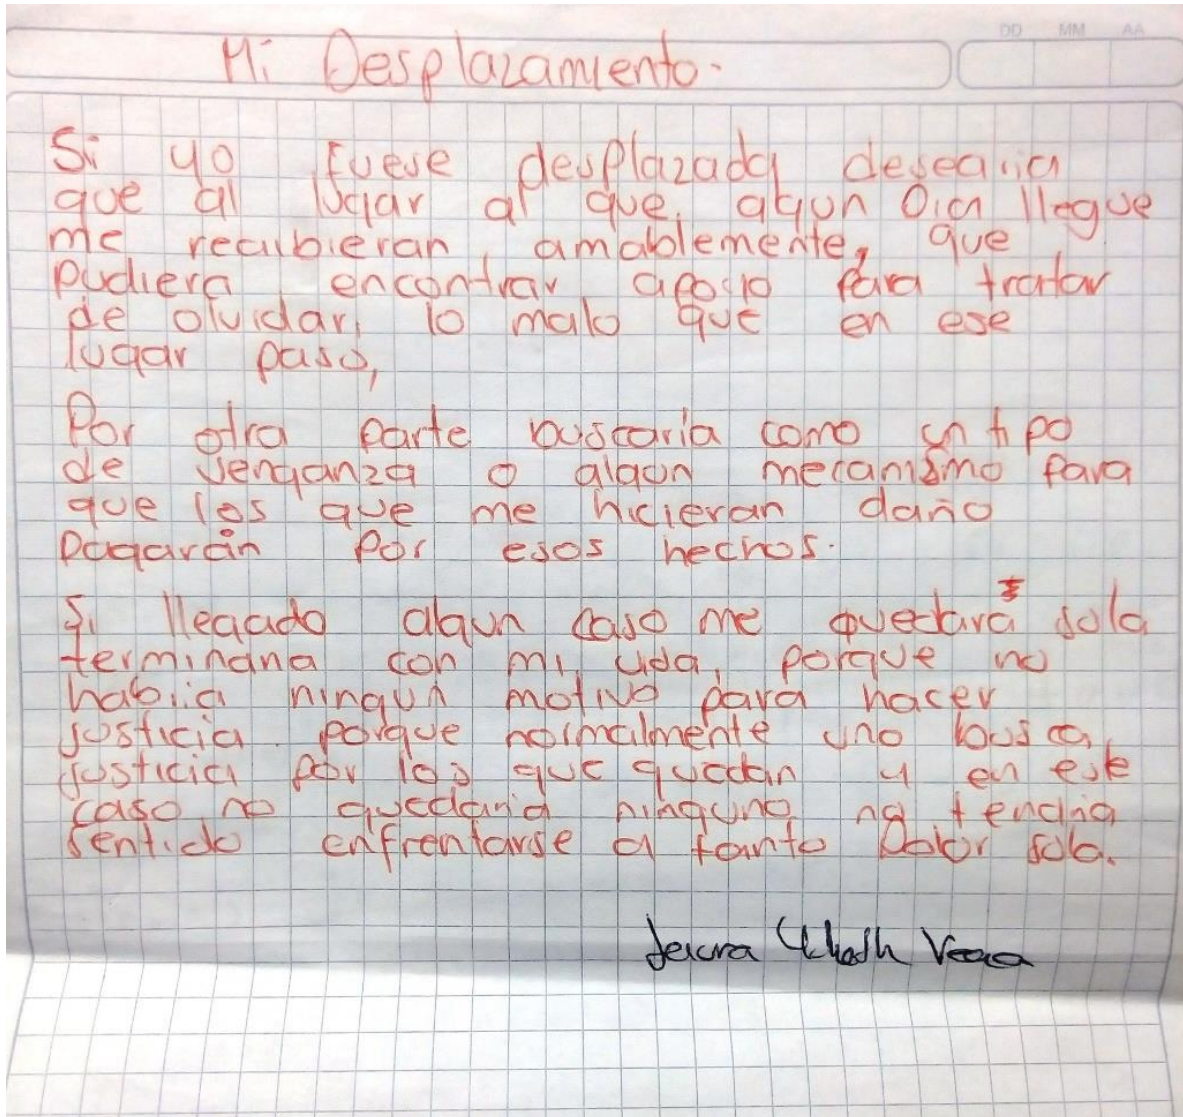 DD MM AA
Mi Desplazamiento.
Si yo fuese desplazada desearia
que al lugar al que algun Dia llegue
me recibieran amablemente, que
pudiera encontrar apoyo para tratar
de olvidar lo malo que en ese
lugar pasó,
Por otra parte buscaria como un tipo
de venganza o algun mecanismo para
que los que me hicieran daño
pagarán por esos hechos.
Si llegado algun caso me quedará sola
terminaria con mi vida, porque no
habria ningun motivo para hacer
justicia. porque normalmente uno busca
justicia por los que quedan y en este
caso no quedaria ninguno no tendria
sentido enfrentarse a tanto Dolor sola.